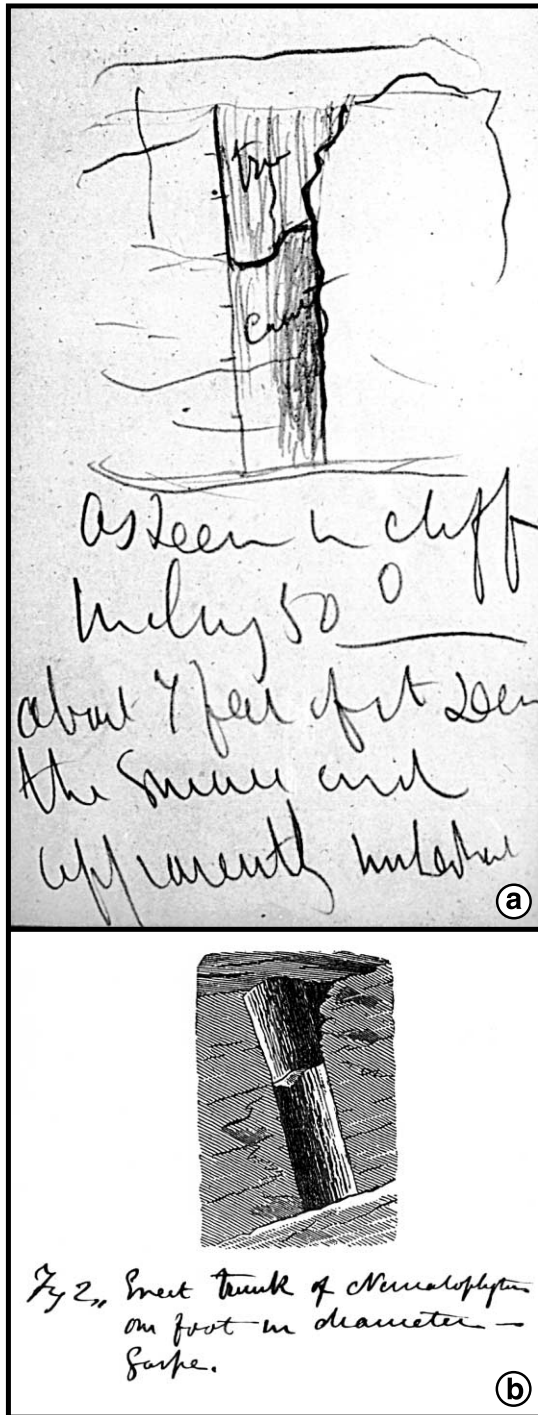 as seen in cliff
50 0
about 7 feet of it seen
the and
apparently
a
Fig 2,, Erect trunk of Nematophyton
one foot in diameter —
Gaspe.
b